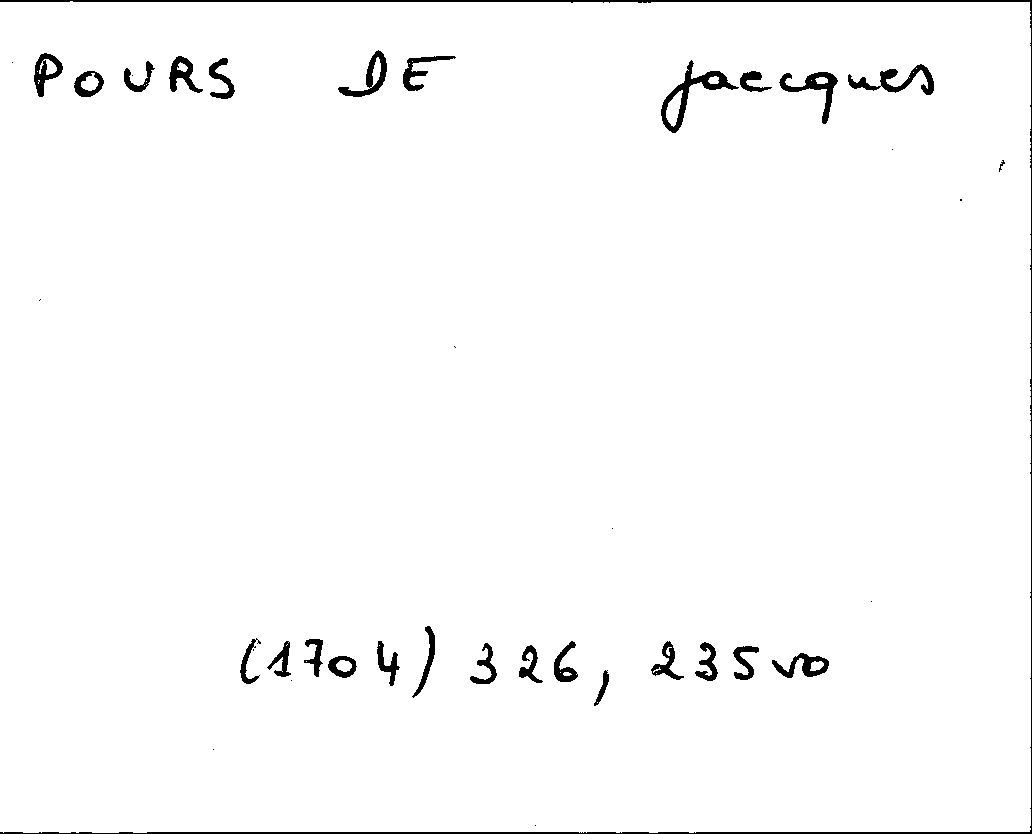 POURS DE jaecques
(1704) 326, 235vo